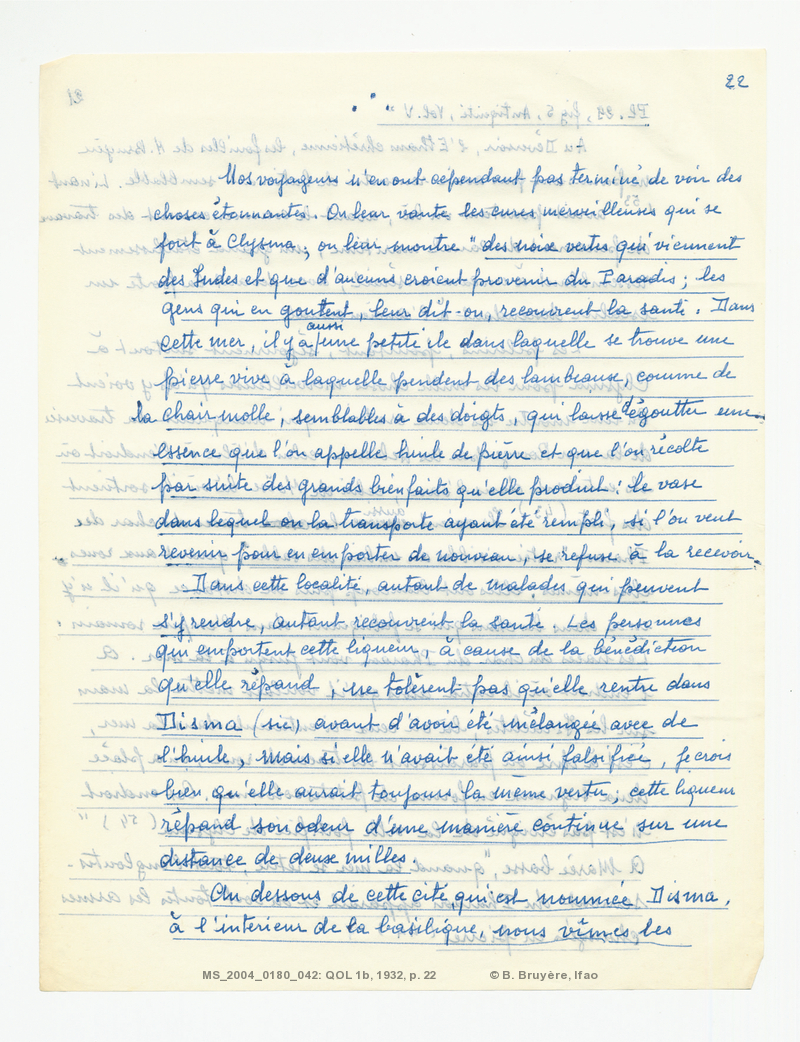 22
Nos voyageurs n'en ont cependant pas terminé de voir des
choses étonnantes. On leur vante les cures merveilleuses qui se
font à Clysma ; on leur montre "des noix vertes qui viennent
des Indes et que d'aucuns croient provenir du Paradis ; les
gens qui en goutent, leur dit-on, recouvrent la santé. Dans
cette mer, il y a aussi une petite ile dans laquelle se trouve une
pierre vive à laquelle pendent des lambeaux, comme de
la chair molle, semblables à des doigts, qui laisse d'égoutter une
essence que l'on appelle huile de pierre et que l'on récolte
par suite des grands bienfaits qu'elle produit : le vase
dans lequel on la transporte ayant été rempli, si l'on veut
revenir pour en emporter de nouveau, se refuse à la recevoir.
Dans cette localité, autant de malades qui peuvent
s'y rendre, autant recouvrent la santé. Les personnes
qui emportent cette liqueur, à cause de la bénédiction
qu'elle répand, ne tolèrent pas qu'elle rentre dans
Disma (sic) avant d'avoir été mélangée avec de
l'huile, mais si elle n'avait été ainsi falsifiée, je crois
bien qu'elle aurait toujours la même vertu ; cette liqueur
répand son odeur d'une manière continue sur une
distance de deux milles.
Au dessous de cette cité qui est nommée Disma,
à l'intérieur de la basilique, nous vîmes les
MS_2004_0180_042: QOL 1b, 1932, p. 22 © B. Bruyère, Ifao